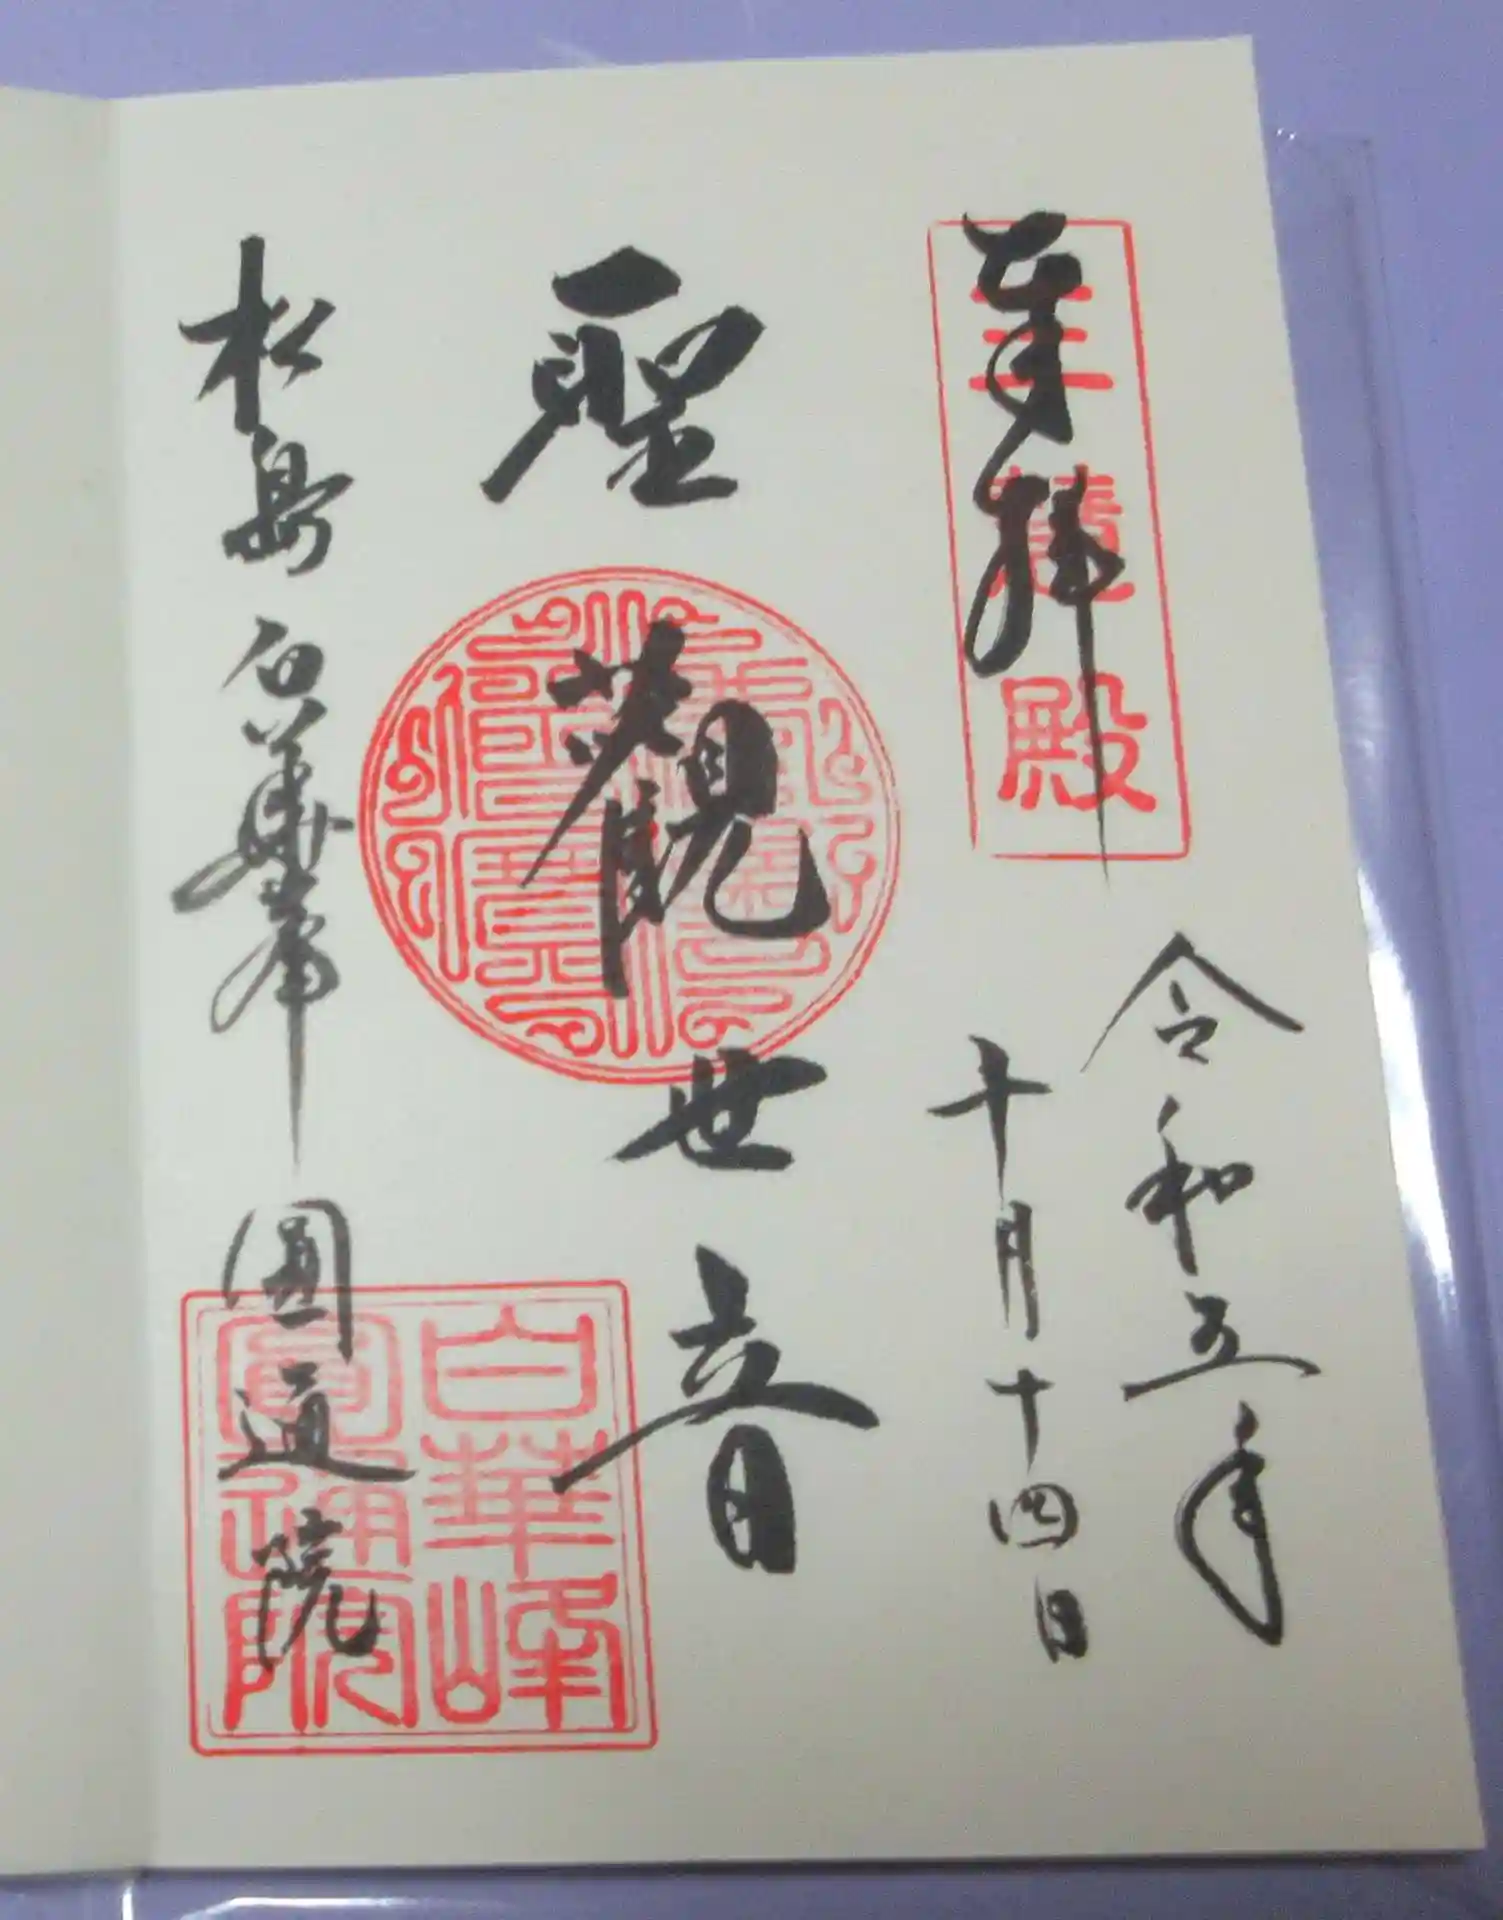 奉拝
三慧殿
令和五年
十月十四日
聖観世音
松島 白華峯 圓通院
白華峰
圓通院